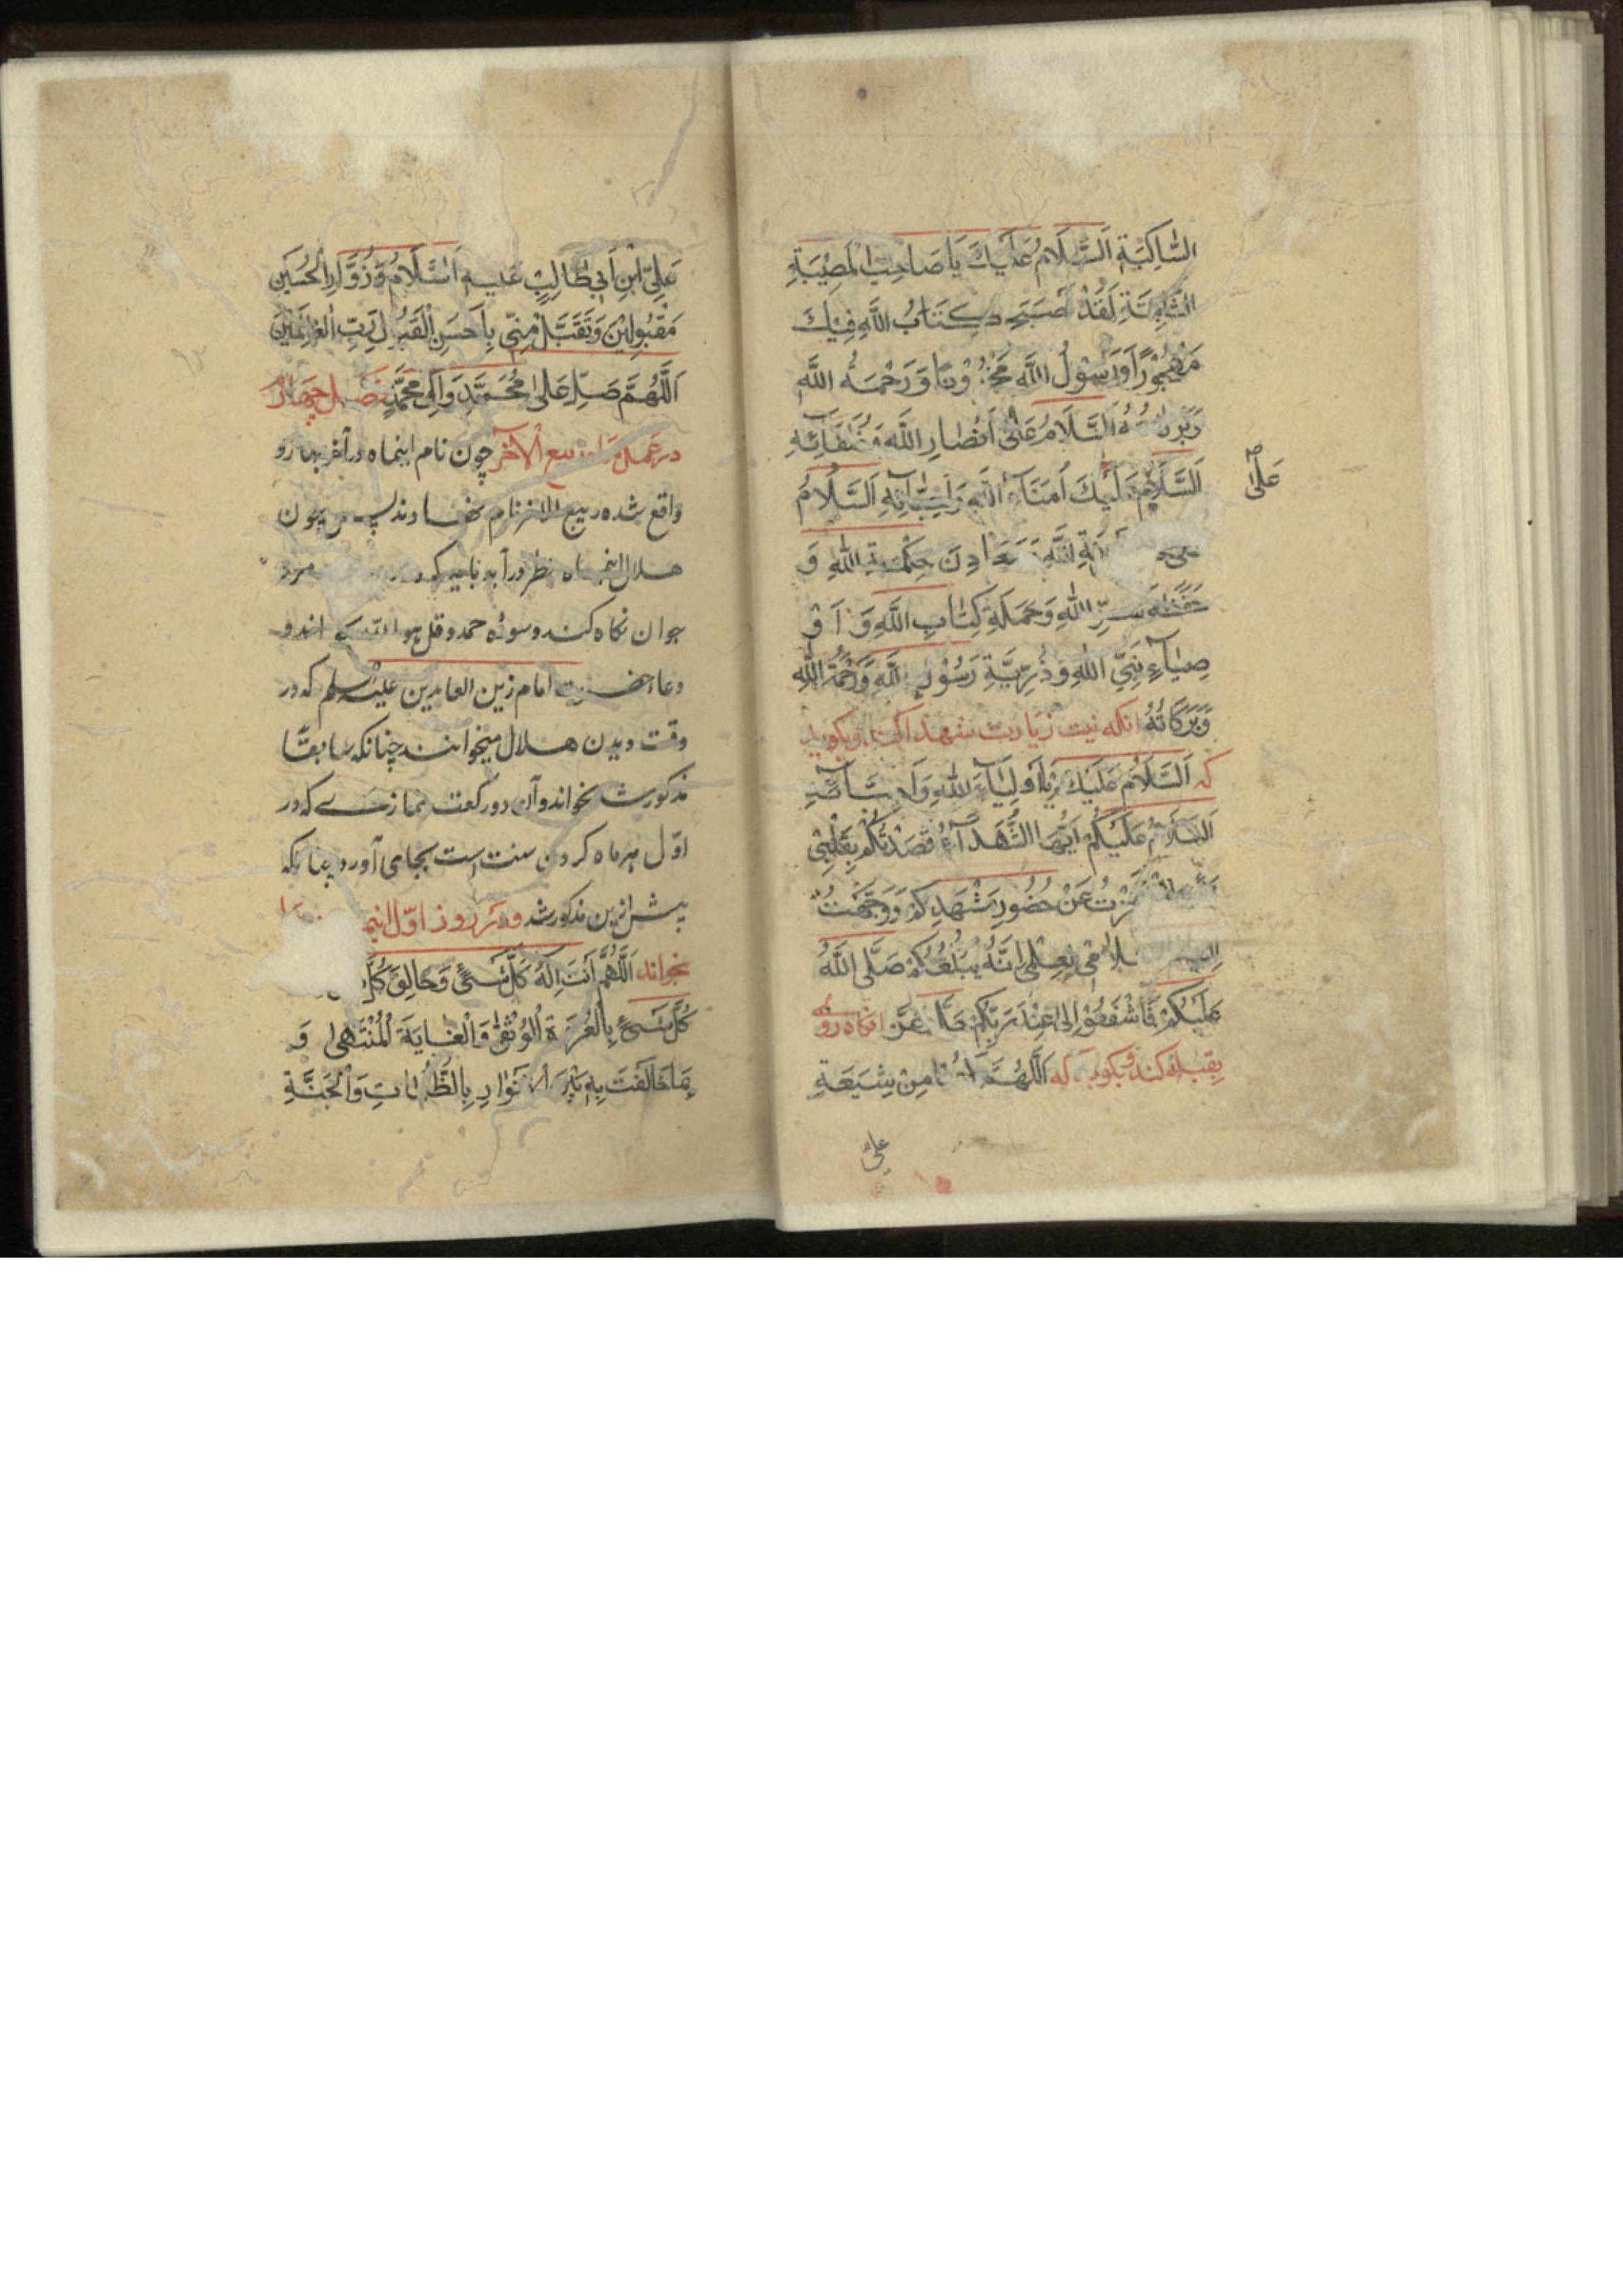 السَّاكِبَةِ اَلسَّلَامُ عَلَيْكَ يَا صَاحِبَ الْمُصِيْبَةِ
لَقَدْ اَصْبَحَ كِتَابُ اللَّهِ فِيْكَ
مَهْجُوْرًا وَرَسُوْلُ اللَّهِ مَحْزُوْنًا وَرَحْمَةُ اللَّهِ
اَلسَّلَامُ عَلٰى اَنْصَارِ اللَّهِ وَخُلَفَائِهِ
اَلسَّلَامُ اُمَنَاءِ اللَّهِ وَاَحِبَّائِهِ اَلسَّلَامُ
عَلٰى
اللَّهِ وَمَعَادِنَ حِكْمَةِ اللَّهِ وَ
حَفَظَةِ سِرِّ اللَّهِ وَحَمَلَةِ كِتَابِ اللَّهِ وَ اَوْ
صِيَاءِ نَبِيِّ اللَّهِ وَذُرِّيَّةِ رَسُوْلِ اللَّهِ وَرَحْمَةُ اللَّهِ
وَبَرَكَاتُهُ انکه نیت زیارت شهدا کند وبکوید
که اَلسَّلَامُ عَلَيْكَ يَا اَوْلِيَاءَ اللَّهِ
اَلسَّلَامُ عَلَيْكُمْ اَيُّهَا الشُّهَدَآءُ قَصَدْتُكُمْ بِقَلْبِيْ
عَنْ حُضُوْرِ مَشْهَدِكُمْ وَوَجَّهْتُ
سَلَامِيْ بِعِلْمِيْ اِنَّهُ يَبْلُغُكُمْ صَلَّى اللَّهُ
عَلَيْكُمْ فَاشْفَعُوْا لِيْ عِنْدَ رَبِّكُمْ انکاه روی
بقبله کند وبکوید که اَللَّهُمَّ مِنْ شِيْعَةِ
علی
عَلِيِّ ابْنِ اَبِيْ طَالِبٍ عَلَيْهِ السَّلَامُ وَزُوَّارِ الْحُسَيْنِ
مَقْبُوْلِيْنَ وَتَقَبَّلْ مِنِّيْ بِاَحْسَنِ الْقَبُوْلِ رَبِّ الْعَالَمِيْنَ
اَللَّهُمَّ صَلِّ عَلٰى مُحَمَّدٍ وَاٰلِ مُحَمَّدٍ فصل چهارم
در عمل ماه ربیع الآخر چون نام اینماه در آخر بهار رو
واقع شده ربیع الاخر نام نهادند پس چون
هلال اینماه بنظر درآید باید که
جوان نکاه کند وسوره حمد وقل هو الله بخواند و
دعاء حضرت امام زین العابدین علیه السلم که در
وقت دیدن هلال میخوانند چنانکه سابقًا
مذکور شد بخواند وآن دو رکعت نمازے که در
اوّل هر ماه کردن سنت است بجای آورد چنانکه
پیش ازین مذکور شد ودر روز اوّل اینماه
بخواند اَللَّهُمَّ اَنْتَ اِلٰهُ كُلِّ شَيْءٍ وَخَالِقُ كُلِّ
كُلِّ شَيْءٍ بِالْعُرْوَةِ الْوُثْقٰى وَالْغَايَةِ الْمُنْتَهٰى وَ
بِمَا خَالَفْتَ بِهِ بَيْنَ الْاَنْوَارِ بِالظُّلُمَاتِ وَالْجَنَّةِ